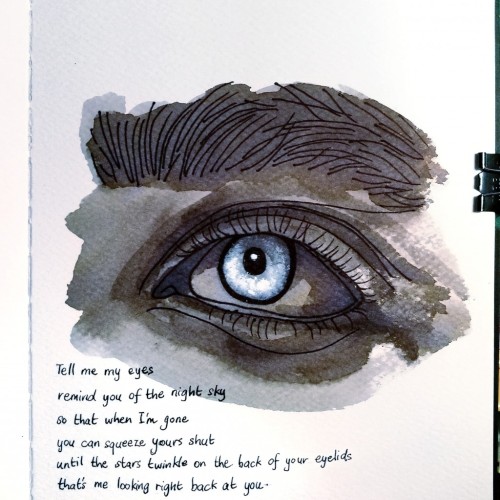 Tell me my eyes
remind you of the night sky
so that when I'm gone
you can squeeze yours shut
until the stars twinkle on the back of your eyelids
that's me looking right back at you.